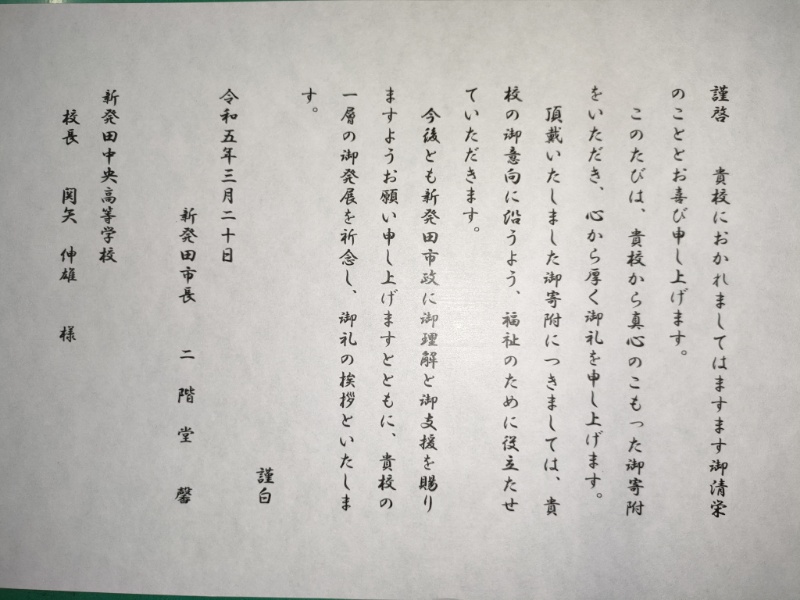 謹啓　貴校におかれましてはますます御清栄
のこととお喜び申し上げます。
このたびは、貴校から真心のこもった御寄附
をいただき、心から厚く御礼を申し上げます。
頂戴いたしました御寄附につきましては、貴
校の御意向に沿うよう、福祉のために役立たせ
ていただきます。
今後とも新発田市政に御理解と御支援を賜り
ますようお願い申し上げますとともに、貴校の
一層の御発展を祈念し、御礼の挨拶といたしま
す。
謹白
令和五年三月二十日
新発田市長　二階堂　馨
新発田中央高等学校
校長　関矢　伸雄　様